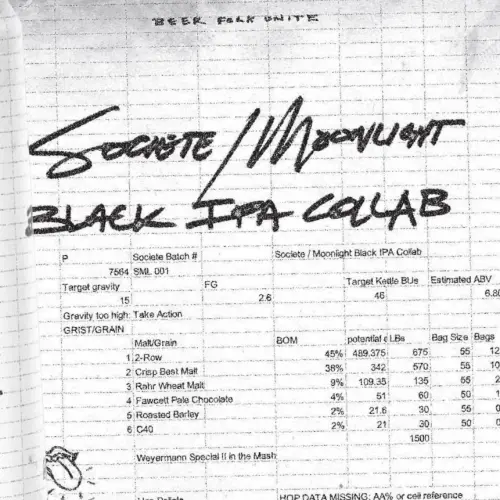 BEER FOLK UNITE
SOCIETE / MOONLIGHT
BLACK IPA COLLAB
P Societe Batch # Societe / Moonlight Black IPA Collab
7564 SML 001
Target gravity FG Target Kettle BUs Estimated ABV
15 2.6 46 6.80
Gravity too high: Take Action
GRIST/GRAIN
Malt/Grain BOM potential LBs Bag Size Bags
1 2-Row 45% 489.375 675 55 12
2 Crisp Best Malt 38% 342 570 55 10
3 Rahr Wheat Malt 9% 109.35 135 55 2
4 Fawcett Pale Chocolate 4% 51 60 50 1
5 Roasted Barley 2% 21.6 30 55 0
6 C40 2% 21 30 50 0
1500
Weyermann Special II in the Mash
Hop Pellets HOP DATA MISSING: AA% or cell reference